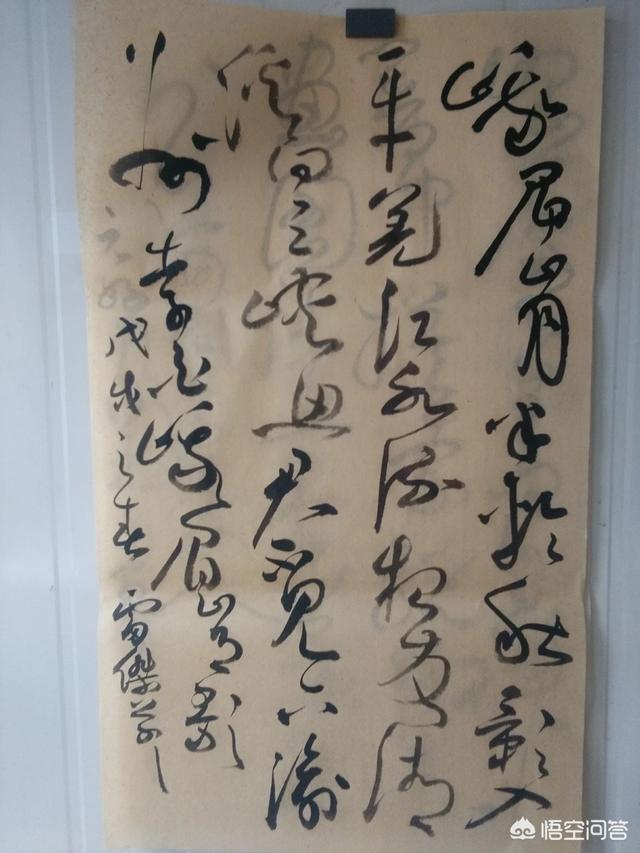 峨眉山月半輪秋影入
平羌江水流夜發清
溪向三峽思君不見下渝
州 李白峨眉山月歌
戊戌之春 雷傑草
悟空问答